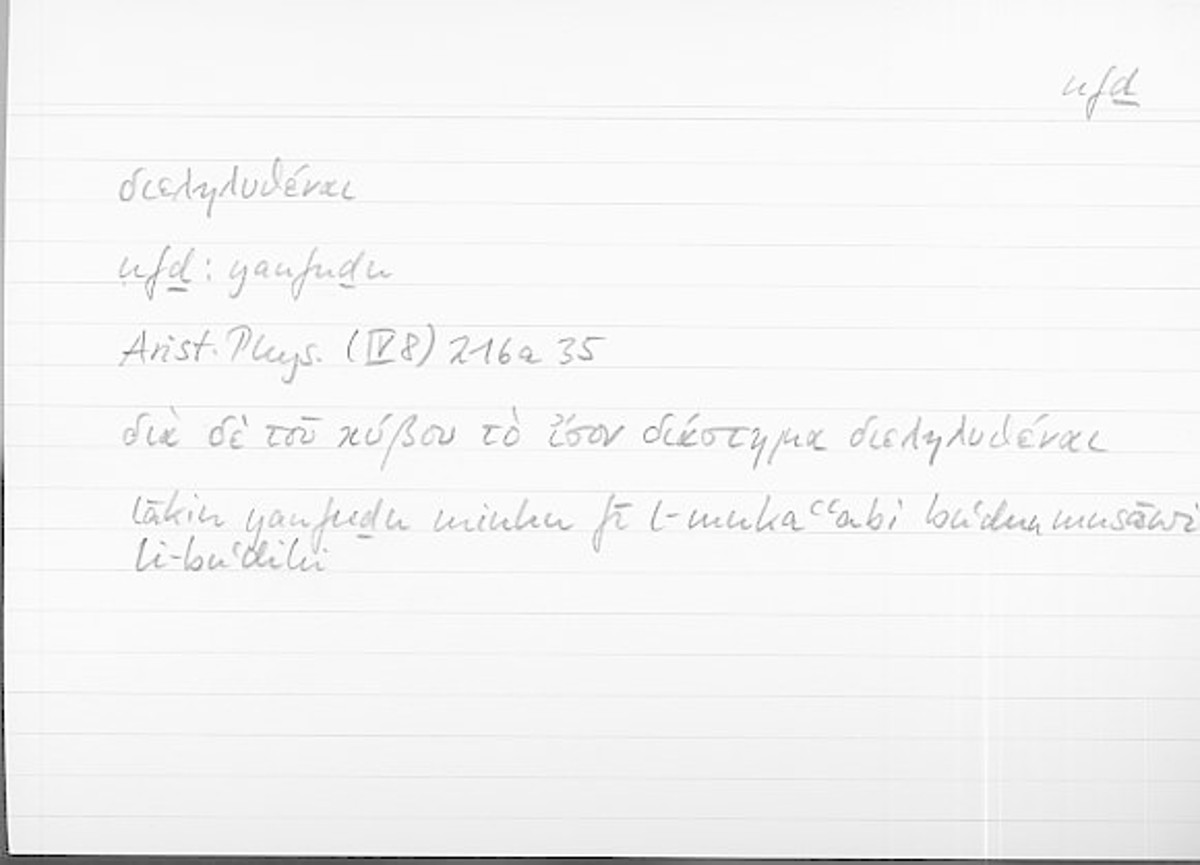 nfḏ
διεληλυθέναι
nfḏ: yanfuḏu
Arist. Phys. (IV 8) 216a 35
διὰ δὲ τοῦ κύβου τὸ ἴσον διάστημα διεληλυθέναι
lākin yanfuḏu minhu fī l-mukaʿʿabi buʿdun musāwi
li-buʿdihi